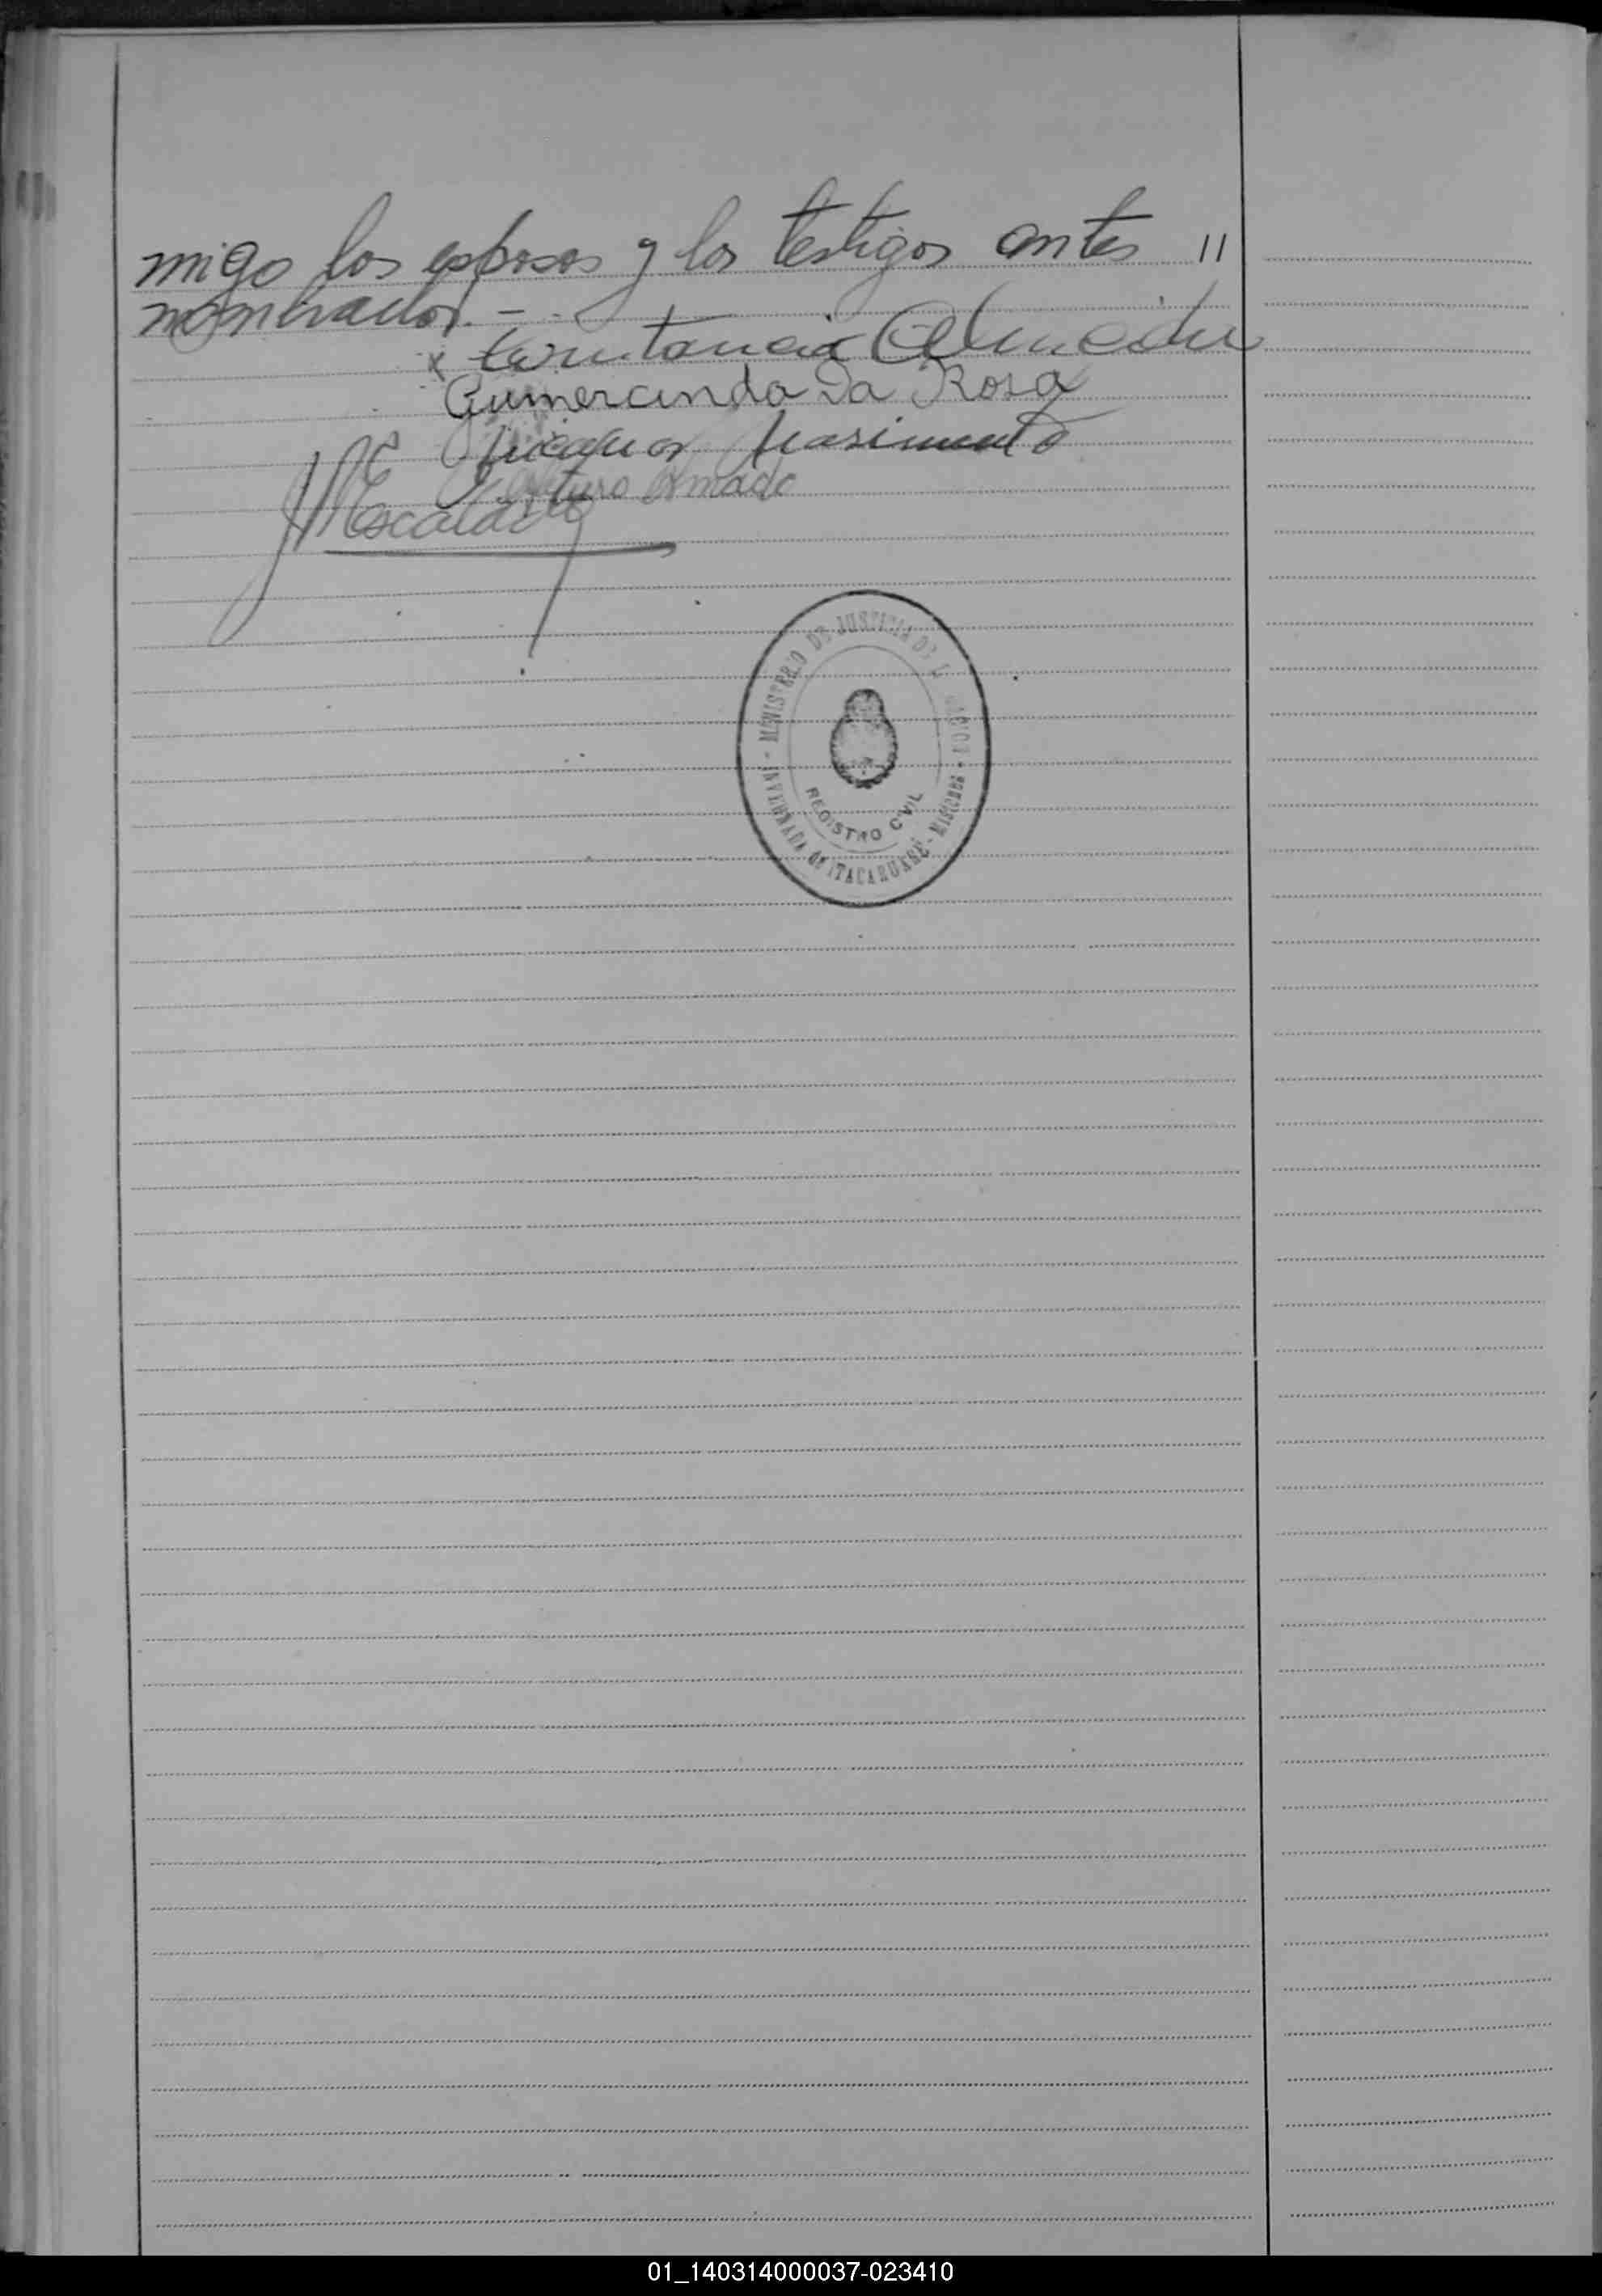 migo los esposos y los testigos antes //
nombrados. - -
x Constancia Almeida
Gumercindo Da Rosa
Nicanor Nasimento
Arturo Amado
Escalada
MINISTERIO DE JUSTICIA DE LA NACION
REGISTRO CIVIL
INVERNADA DE ITACARUARE - MISIONES
01_140314000037-023410